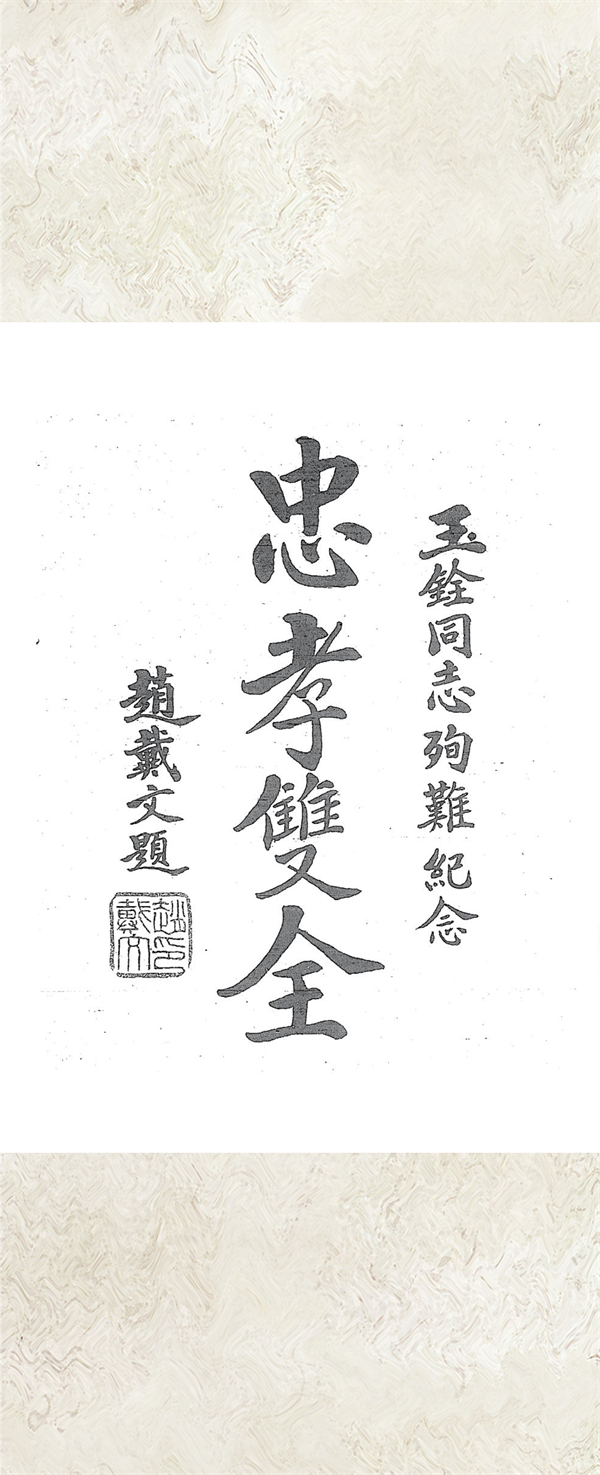 玉銓同志殉難紀念
忠孝雙全
趙戴文題
趙戴文印